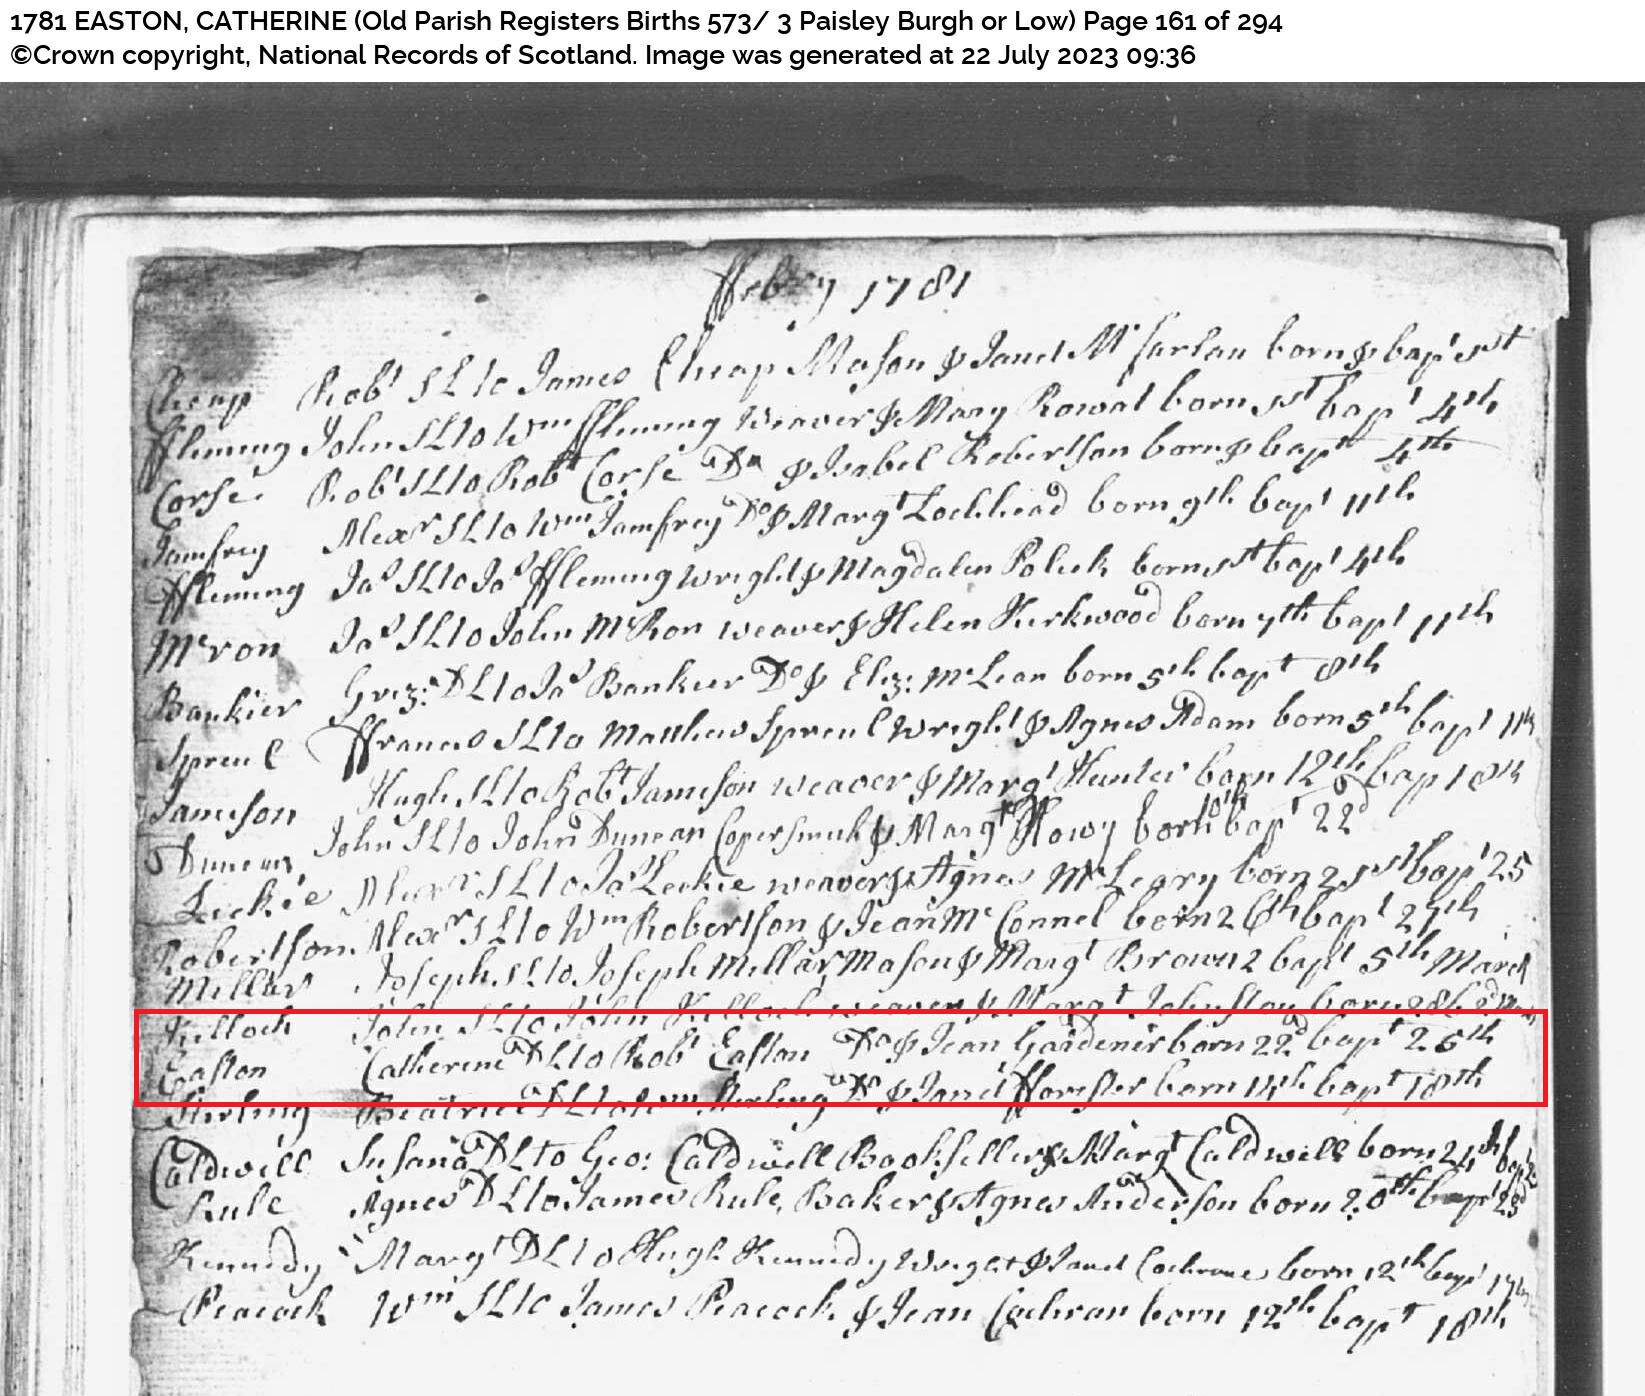 1781 EASTON, CATHERINE (Old Parish Registers Births 573/ 3 Paisley Burgh or Low) Page 161 of 294
©Crown copyright, National Records of Scotland. Image was generated at 22 July 2023 09:36
ffebry 1781
Cheap Robt SL to James Cheap Mason & Janet Mcfarlan born & bapt 1st
ffleming John SL to Wm ffleming Weaver & Mary Rowat born 1st bapt 4th
Corse Robt SL to Robt Corse Do & Isabel Robertson born & bapt 4th
Jamfrey Alexr SL to Wm Jamfrey Do & Margt Lochhead born 9th bapt 11th
ffleming Jas SL to Jas ffleming wright & Magdalen Polick born 1st bapt 4th
McRon Jas SL to John McRon weaver & Helen Kirkwood born 7th bapt 11th
Bankier Griz: DL to Jas Bankier Do & Eliz: McLean born 5th bapt 8th
Spreul ffrances SL to Matthew Spreul wright & Agnes Adam born 5th bapt 11th
Jameson Hugh SL to Robt Jameson weaver & Margt Hunter born 12th bapt 18th
Duncan John SL to John Duncan Copersmith & Margt Howy born 10th bapt 22d
Leckie Alexr SL to Jas Leckie weaver & Agnes McLeary born 21st bapt 25
Robertson Alexr SL to Wm Robertson & Jean McConnel born 26th bapt 27th
Millar Joseph SL to Joseph Millar Mason & Margt Brown 2 bapt 5th March
Killoch John SL to John Killoch weaver & Margt Johnston born 28
Easton Catherine DL to Robt Easton Do & Jean Gardener born 22d bapt 25th
Stirling Beatrice DL to Wm Stirling Do & Janet fforester born 14th bapt 18th
Caldwell Susana DL to Geo: Caldwell Bookseller & Margt Caldwell born 24th bapt
Rule Agnes DL to James Rule, Baker & Agnes Anderson born 20th bapt 25
Kennedy Margt DL to Hugh Kennedy Wright & Janet Cochrane born 12th bapt 17th
Peacock Wm SL to James Peacock & Jean Cochran born 12th bapt 18th